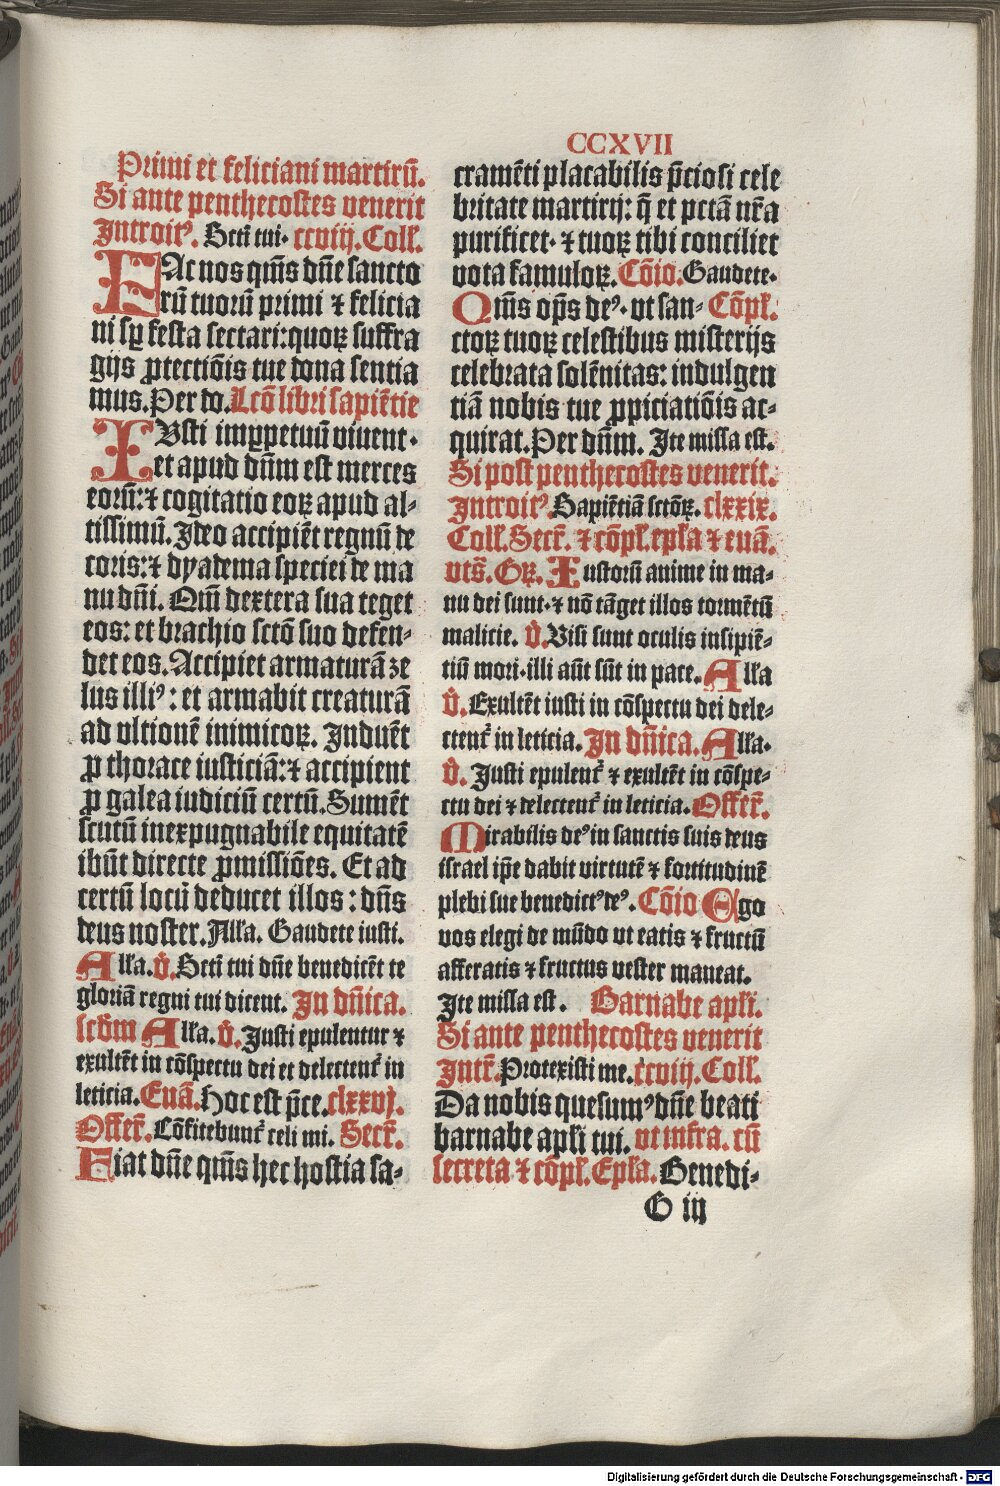 CCXVII
Primi et feliciani martirū.
Si ante penthecostes venerit
Introitꝰ. Scti tui. ccviij. Coll'.
FAc nos qm̄s dn̄e sancto
rū tuorū primi ⁊ felicia
ni sꝑ festa sectari: quoꝝ suffra
gijs ꝓtectiōis tue dona sentia
mus. Per do. Lcō libri sapiētie
IVsti imꝑpetuū viuent.
et apud dn̄m est merces
eorū: ⁊ cogitatio eoꝝ apud al-
tissimū. Ideo accipiēt regnū de
coris: ⁊ dyadema speciei de ma
nu dn̄i. Qm̄ dextera sua teget
eos: et brachio sctō suo defen-
det eos. Accipiet armaturā ze
lus illiꝰ: et armabit creaturā
ad vltionē inimicoꝝ. Induēt
ꝓ thorace iusticiā: ⁊ accipient
ꝓ galea iudiciū certū. Sumēt
scutū inexpugnabile equitatē
ibūt directe ꝓmissiōes. Et ad
certū locū deducet illos: dn̄s
deus noster. Alla. Gaudete iusti.
Alla. V̄. Scti tui dn̄e benedicēt te
gloriā regni tui dicent. In dn̄ica.
scd̄m Alla. V̄. Justi epulentur ⁊
exultēt in cōspectu dei et delectent᷑ in
leticia. Euā. Hoc est p̄ce. clxxvj.
Offer̄. Cōfitebunt᷑ celi mi. Secr̄.
Fiat dn̄e qm̄s hec hostia sa-
cramēti placabilis p̄ciosi cele
britate martirij: q̄ et pctā nr̄a
purificet. ⁊ tuoꝝ tibi conciliet
vota famuloꝝ. Cōio. Gaudete.
Qm̄s op̄s deꝰ. vt san- Cōpl'.
ctoꝝ tuoꝝ celestibus misterijs
celebrata solēnitas: indulgen
tiā nobis tue ꝓpiciatiōis ac-
quirat. Per dn̄m. Ite missa est.
Si post penthecostes venerit.
Introitꝰ. Sapiētiā sctōꝝ. clxxix.
Coll'. Secr̄. ⁊ cōpl'. ep̄la ⁊ euā.
vts̄. Gꝝ. Iustorū anime in ma-
nu dei sunt. ⁊ nō tāget illos tormētū
malicie. V̄. Visi sunt oculis insipiē-
tiū mori. illi aūt sūt in pace. Alla
V̄. Exultēt iusti in cōspectu dei dele-
ctent᷑ in leticia. In dn̄ica. Alla.
V̄. Justi epulent᷑ ⁊ exultēt in cōspe-
ctu dei ⁊ delectent᷑ in leticia. Offer̄.
Mirabilis deꝰ in sanctis suis deus
israel ip̄e dabit virtutē ⁊ fortitudinē
plebi sue benedictꝰ deꝰ. Cōio Ego
vos elegi de mūdo vt eatis ⁊ fructū
afferatis ⁊ fructus vester maneat.
Ite missa est. Barnabe apl'i.
Si ante penthecostes venerit
Intr̄. Protexisti me. ccviij. Coll'.
Da nobis quesumꝰ dn̄e beati
barnabe apl'i tui. vt infra. cū
secreta ⁊ cōpl'. Ep̄la. Benedi-
G iij
Digitalisierung gefördert durch die Deutsche Forschungsgemeinschaft - DFG